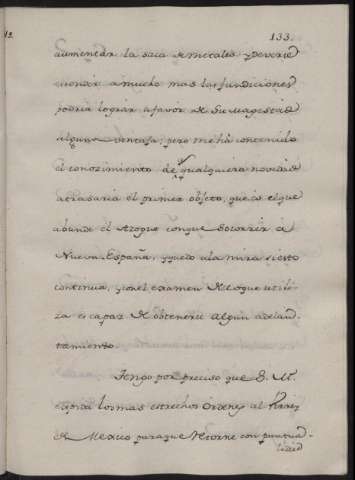 13.
133.
aumentar la saca de metales, y perfe
cionar a mucho mas las fundiciones
podria lograr a favor de Su Magestad
alguna ventaja; pero me há contenido
el conozimiento de q.e qualquiera novedad
atrasaria el primer objeto, que es el que
abunde el Azogue con que socorrer à
Nueva España, y quedo à la mira siesto
continua, y con el examen de lo que utili-
za es capaz de obtenerse algun adelan-
tamiento.
Tengo por preciso que S. M.
expida las mas estrechas Ordenes al Virrey
de Mexico para que retorne con puntua-
lidad